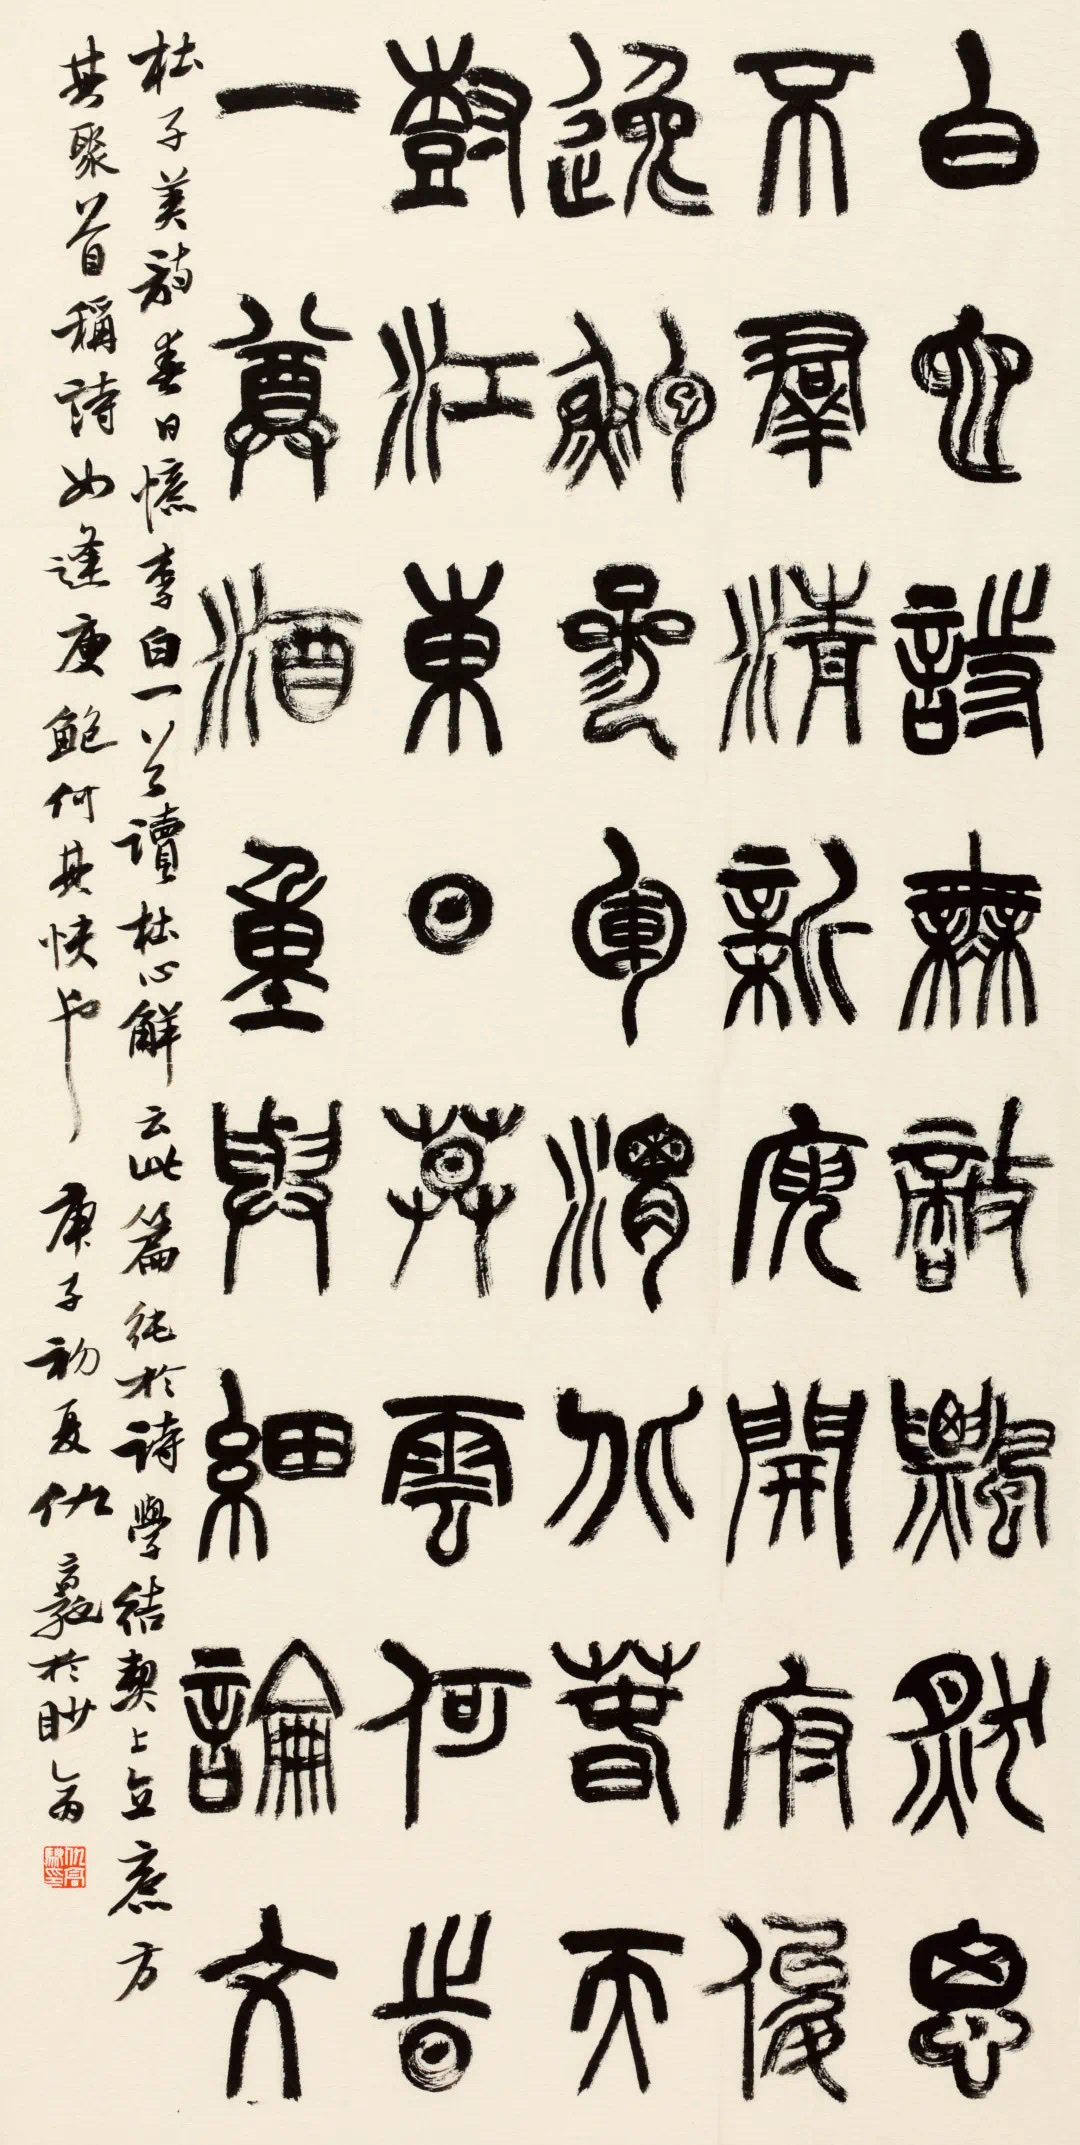 白也詩無敵飄然思
不羣清新庾開府俊
逸鮑參軍渭北春天
樹江東日暮雲何時
一尊酒重與細論文
杜子美詩春日憶李白一首讀杜心解云此篇純於詩學結契上立意方
其聚首稱詩如逢庾鮑何其快也 庚子初夏仇高馳於
仇高馳印